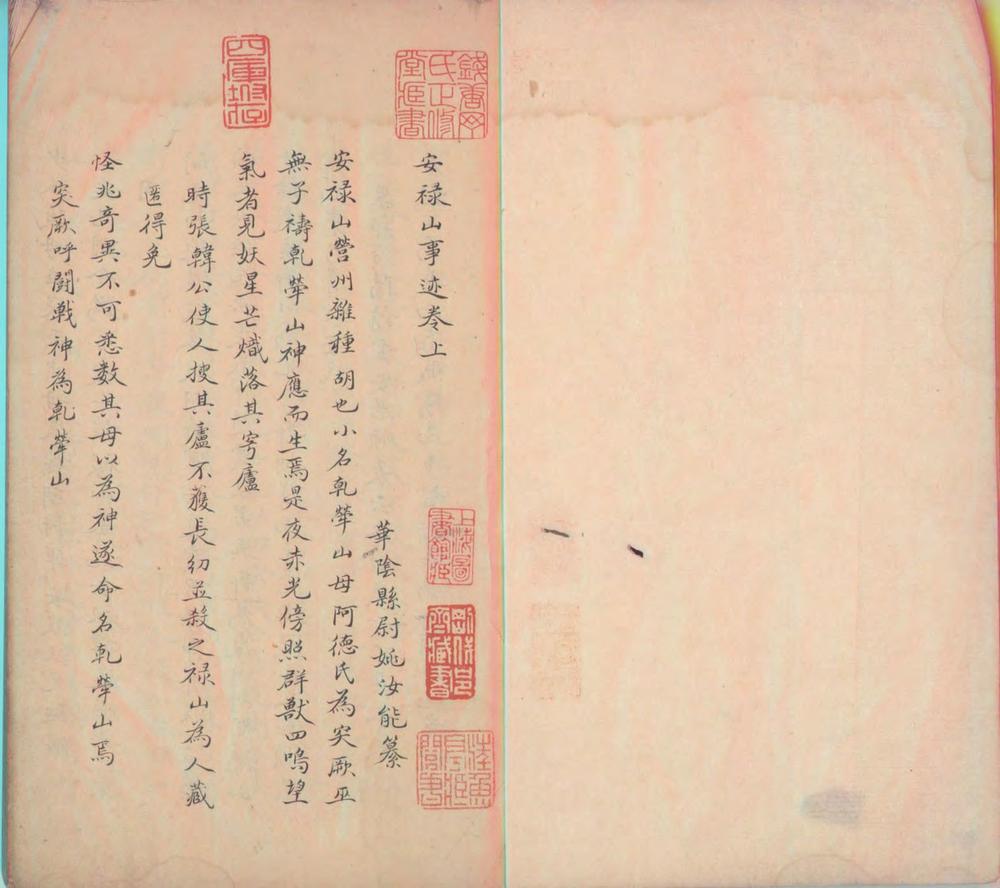 安禄山事迹卷上
華陰縣尉姚汝能纂
安禄山營州雜種胡也小名軋犖山母阿德氏為突厥巫
無子禱軋犖山神應而生焉是夜赤光傍照群獸四鳴望
氣者見妖星芒熾落其穹廬
時張韓公使人搜其廬不獲長幼並殺之禄山為人藏
匿得免
怪兆奇異不可悉數其母以為神遂命名軋犖山焉
突厥呼鬭戰神為軋犖山
四庫坿存
錢唐丁氏正修堂藏書
上海圖書館藏